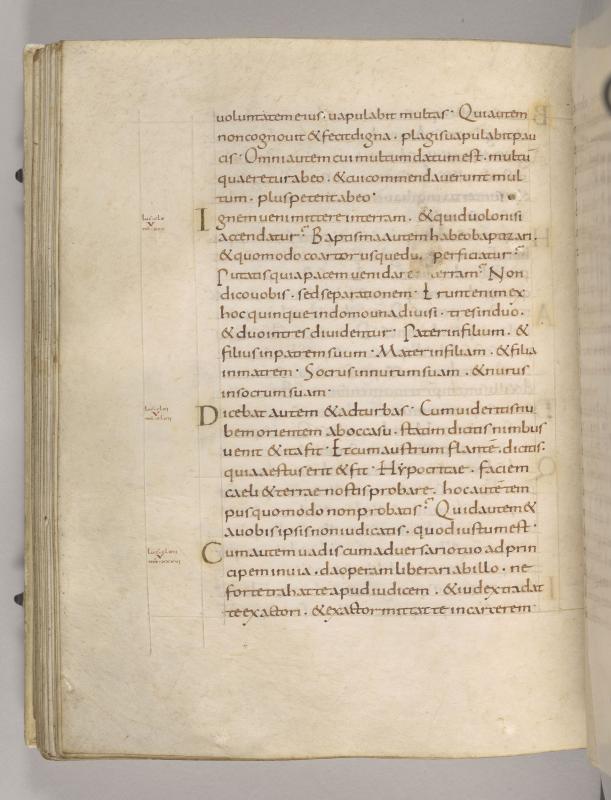 voluntatem eius. vapulabit multas. Qui autem
non cognouit & fecit digna. plagis uapulabit pau
cis. Omni autem cui multum datum est. multū
quaeretur ab eo. & cui commendauerunt mul
tum. plus petent ab eo.
Ignem ueni mittere in terram. & quid uolo nisi
accendatur? Baptisma autem habeo baptizari.
& quomodo coartor usquedu perficiatur?
Putatis quia pacem ueni dare terram? Non
dico uobis. sed separationem. Erunt enim ex
hoc quinque in domo una diuisi. tres in duo.
& duo in tres diuidentur. Pater in filium. &
filius in patrem suum. Mater in filiam. & filia
in matrem. Socrus in nurum suam. & nurus
in socrum suam.
Dicebat autem & ad turbas. Cum uideritis nu
bem orientem ab occasu. statim dicitis nimbus
uenit & ita fit. Et cum austrum flantē. dicitis.
quia aestus erit & fit. Hypocritae. faciem
caeli & terrae nostis probare. hoc autē tem
pus quomodo non probatis? Quid autem &
a uobis ipsis non iudicatis. quod iustum est.
Cum autem uadis cum aduersario tuo ad prin
cipem in uia. da operam liberari ab illo. ne
forte trahat te apud iudicem. & iudex tradat
te exactori. & exactor mittat te in carcerem